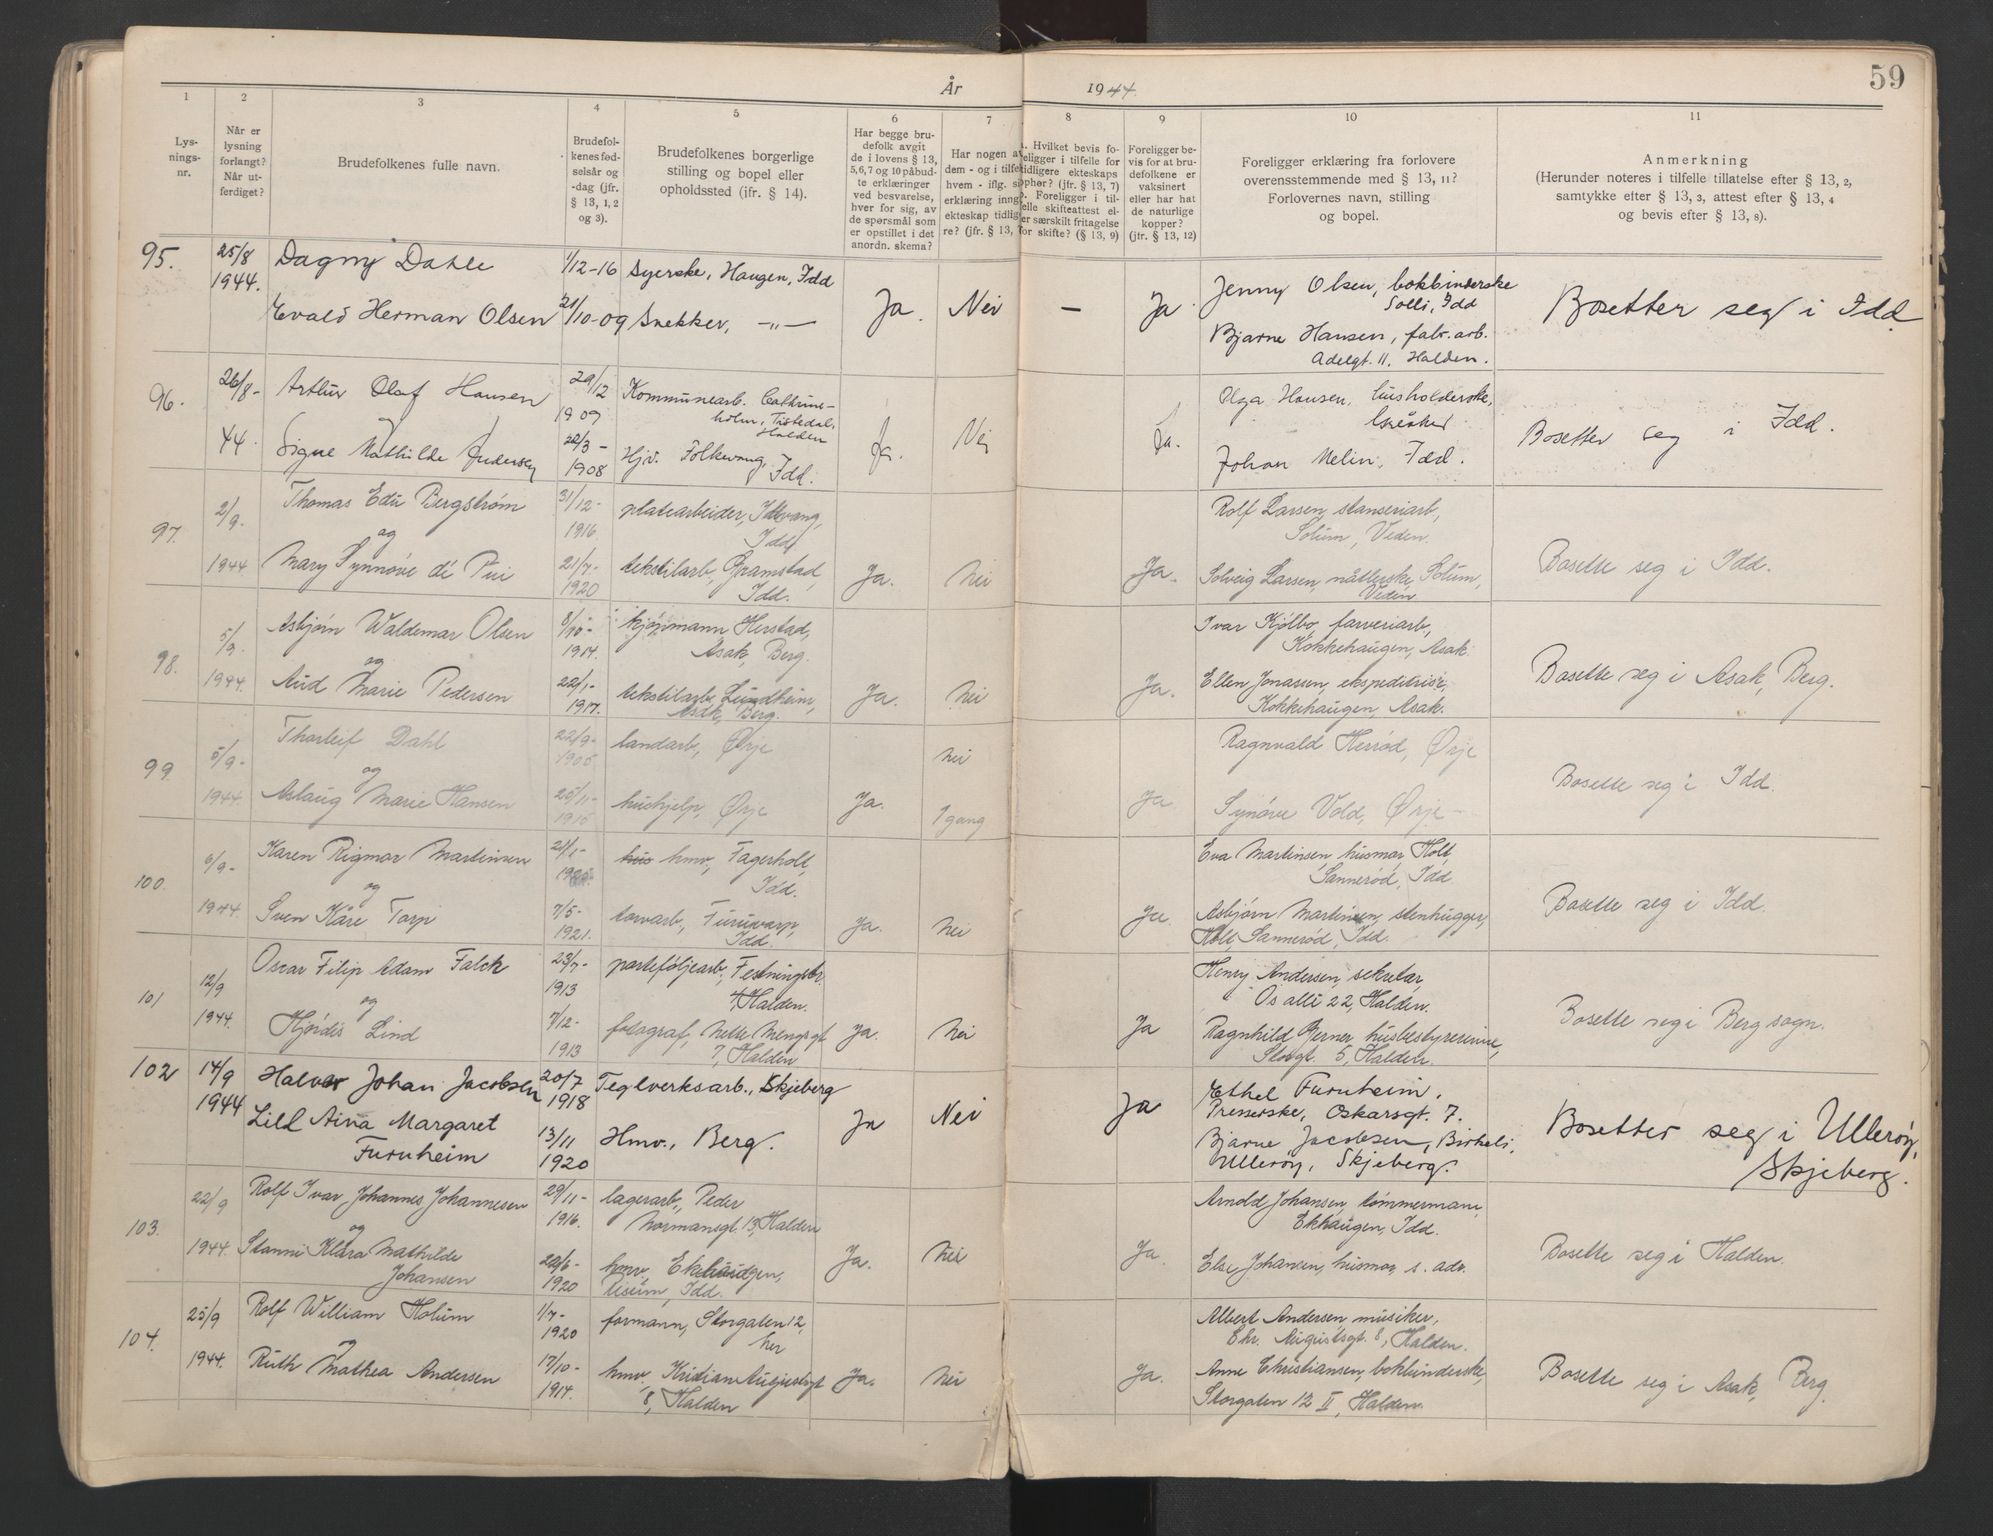 År 1944. 59
1 2 3 4 5 6 7 8 9 10 11
Lys-
nings-
nr.
Når er
lysning
forlangt?
Når ut-
ferdiget?
Brudefolkenes fulle navn.
Brudefol-
kenes fød-
selsår og
-dag (jfr.
§ 13, 1, 2
og 3).
Brudefolkenes borgerlige
stilling og bopel eller
opholdssted (ifr. § 14).
Har begge bru-
defolk avgit
de i lovens § 13,
5,6,7 og 10 påbud-
te erklæringer
ved besvarelse,
hver for sig, av
de spørsmål som
er opstillet i det
anordn. skema?
Har nogen av
dem - og i tilfe
hvem - iflg. si
erklæring inng
ekteskap tidlig
re? (jfr. § 13,
. Hvilket bevis fo-
religger i tilfelle for
tidligere ekteskaps
ophør? (jfr. § 13, 7)
. Foreligger i til-
felle skifteattest el-
er særskilt fritagelse
for skifte? (§ 13, 9)
Foreligger be-
vis for at bru-
defolkene er
vaksinert
eller har hat
de naturlige
kopper?
(jfr. § 13, 12)
Foreligger erklæring fra forlovere
overensstemmende med § 13, 11?
Forlovernes navn, stilling
og bopel.
Anmerkning
(Herunder noteres i tilfelle tillatelse efter § 13, 2,
samtykke efter § 13, 3, attest efter § 13, 4
og bevis efter § 13, 8).
95. 25/8 Dagny Dahle 1/12-16 Syerske, Haugen, Idd
1944. Evald Herman Olsen 21/10-09 Snekker, -"- Ja. Nei – Ja
Jenny Olsen, bokbinderske
Solli, Idd
Bjarne Hansen, fabr. arb.
Adelgt. 11. Halden.
Bosetter seg i Idd
96. 26/8- Artur Olaf Hansen 29/12 1909 Kommunearb. Cathrine-
holm, Tistedal,
Halden
44. Signe Mathilde Andersen 22/3- 1908 Hjv. Folkevang, Idd. Ja. Nei Ja.
Olga Hansen, husholderske,
Johan Melin, Idd.
Bosetter seg i Idd.
97. 2/9. Thomas Edu Bergstrøm 31/12- 1916. platearbeider,
Idd
og
1944 Mary Synnøve di Pui 21/7- 1920 tekstilarb, Gramstad,
Idd. Ja. Nei Ja.
Rolf Larsen, stanseriarb,
Solum, Veden.
Solveig Larsen, nåtlerske, Solum,
Veden
Bosette seg i Idd.
98. 5/9. Asbjørn Waldemar Olsen 8/10- 1914. kjøpmann Herstad,
Asak, Berg.
og
1944. Aud Marie Pedersen 22/1- 1917. tekstilarb, Lundheim,
Asak, Berg. Ja. Nei Ja.
Ivar Kjølbo, farveriarb,
Kokkehaugen, Asak.
Ellen Jonassen, ekspeditrise,
Kokkehaugen, Asak.
Bosette seg i Asak, Berg.
99. 5/9- Thorleif Dahl 22/9- 1905 landarb, Ørje Nei
og
1944. Aslaug Marie Hansen 25/11- 1915 hushjelp, Ørje Ja. 1 gang Ja
Ragnvald Herrød, Ørje
Synøve Vold, Ørje -
Bosette seg i Idd.
100. 6/9- Karen Rigmor Martinsen 21/1- hus hmv, Fagerholt,
Idd.
og
1944. Sven Kåre Torp 7/5- 1921. torvarb., Furuvarp,
Idd. Ja. Nei Ja.
Eva Martinsen, husmor, Holt,
Sannerød, Idd
Asbjørn Martinsen, stenhugger,
Holt, Sannerød, Idd.
Bosette seg i Idd.
101 12/9 Oscar Filip Adam Falck 23/7- 1913 porteføljearb, Festningsbr.
4, Halden.
og
1944. Hjørdis Lind 7/12- 1913 fotograf, Nette Mengsgt
7, Halden Ja. Nei Ja
Henry Andersen, sekretær,
Os allé 22, Halden.
Ragnhild Gerner, husbestyrerinne,
Storgt. 5, Halden.
Bosette seg i Berg sogn.
102 14/9 Halvor Johan Jacobsen 20/7 1918 Teglverksarb., Skjeberg
1944 Lill Aina Margaret
Furuheim 13/11 1920 Hmv., Berg. Ja Nei Ja
Ethel Furuheim,
Presserske, Oskarsgt. 7.
Bjarne Jacobsen, Birkeli,
Ullerøy, Skjeberg.
Bosetter seg i Ullerøy,
Skjeberg.
103. 22/9 Rolf Ivar Johannes Johannesen 29/11- 1916. lagerarb., Peder
Normansgt. 13, Halden
og
1944. Stanni Klara Mathilde
Johansen 22/6- 1920 hmv, Ekhaugen,
Idd. Ja. Nei Ja.
Arnold Johansen, tømmermann,
Ekhaugen, Idd.
Else Johansen, husmor, s. adr.
Bosette seg i Halden.
104. 25/9 Rolf William Holum 1/7- 1920 formann, Storgaten 12,
her
og
1944. Ruth Mathea Andersen 17/10- 1914. hmv, Kristian Augustsgt
8, Halden Ja. Nei Ja.
Albert Andersen, musiker,
Chr. Augustsgt. 8, Halden.
Anne Christiansen, bokbinderske,
Storgaten 12 II, Halden.
Bosette seg i Asak, Berg.